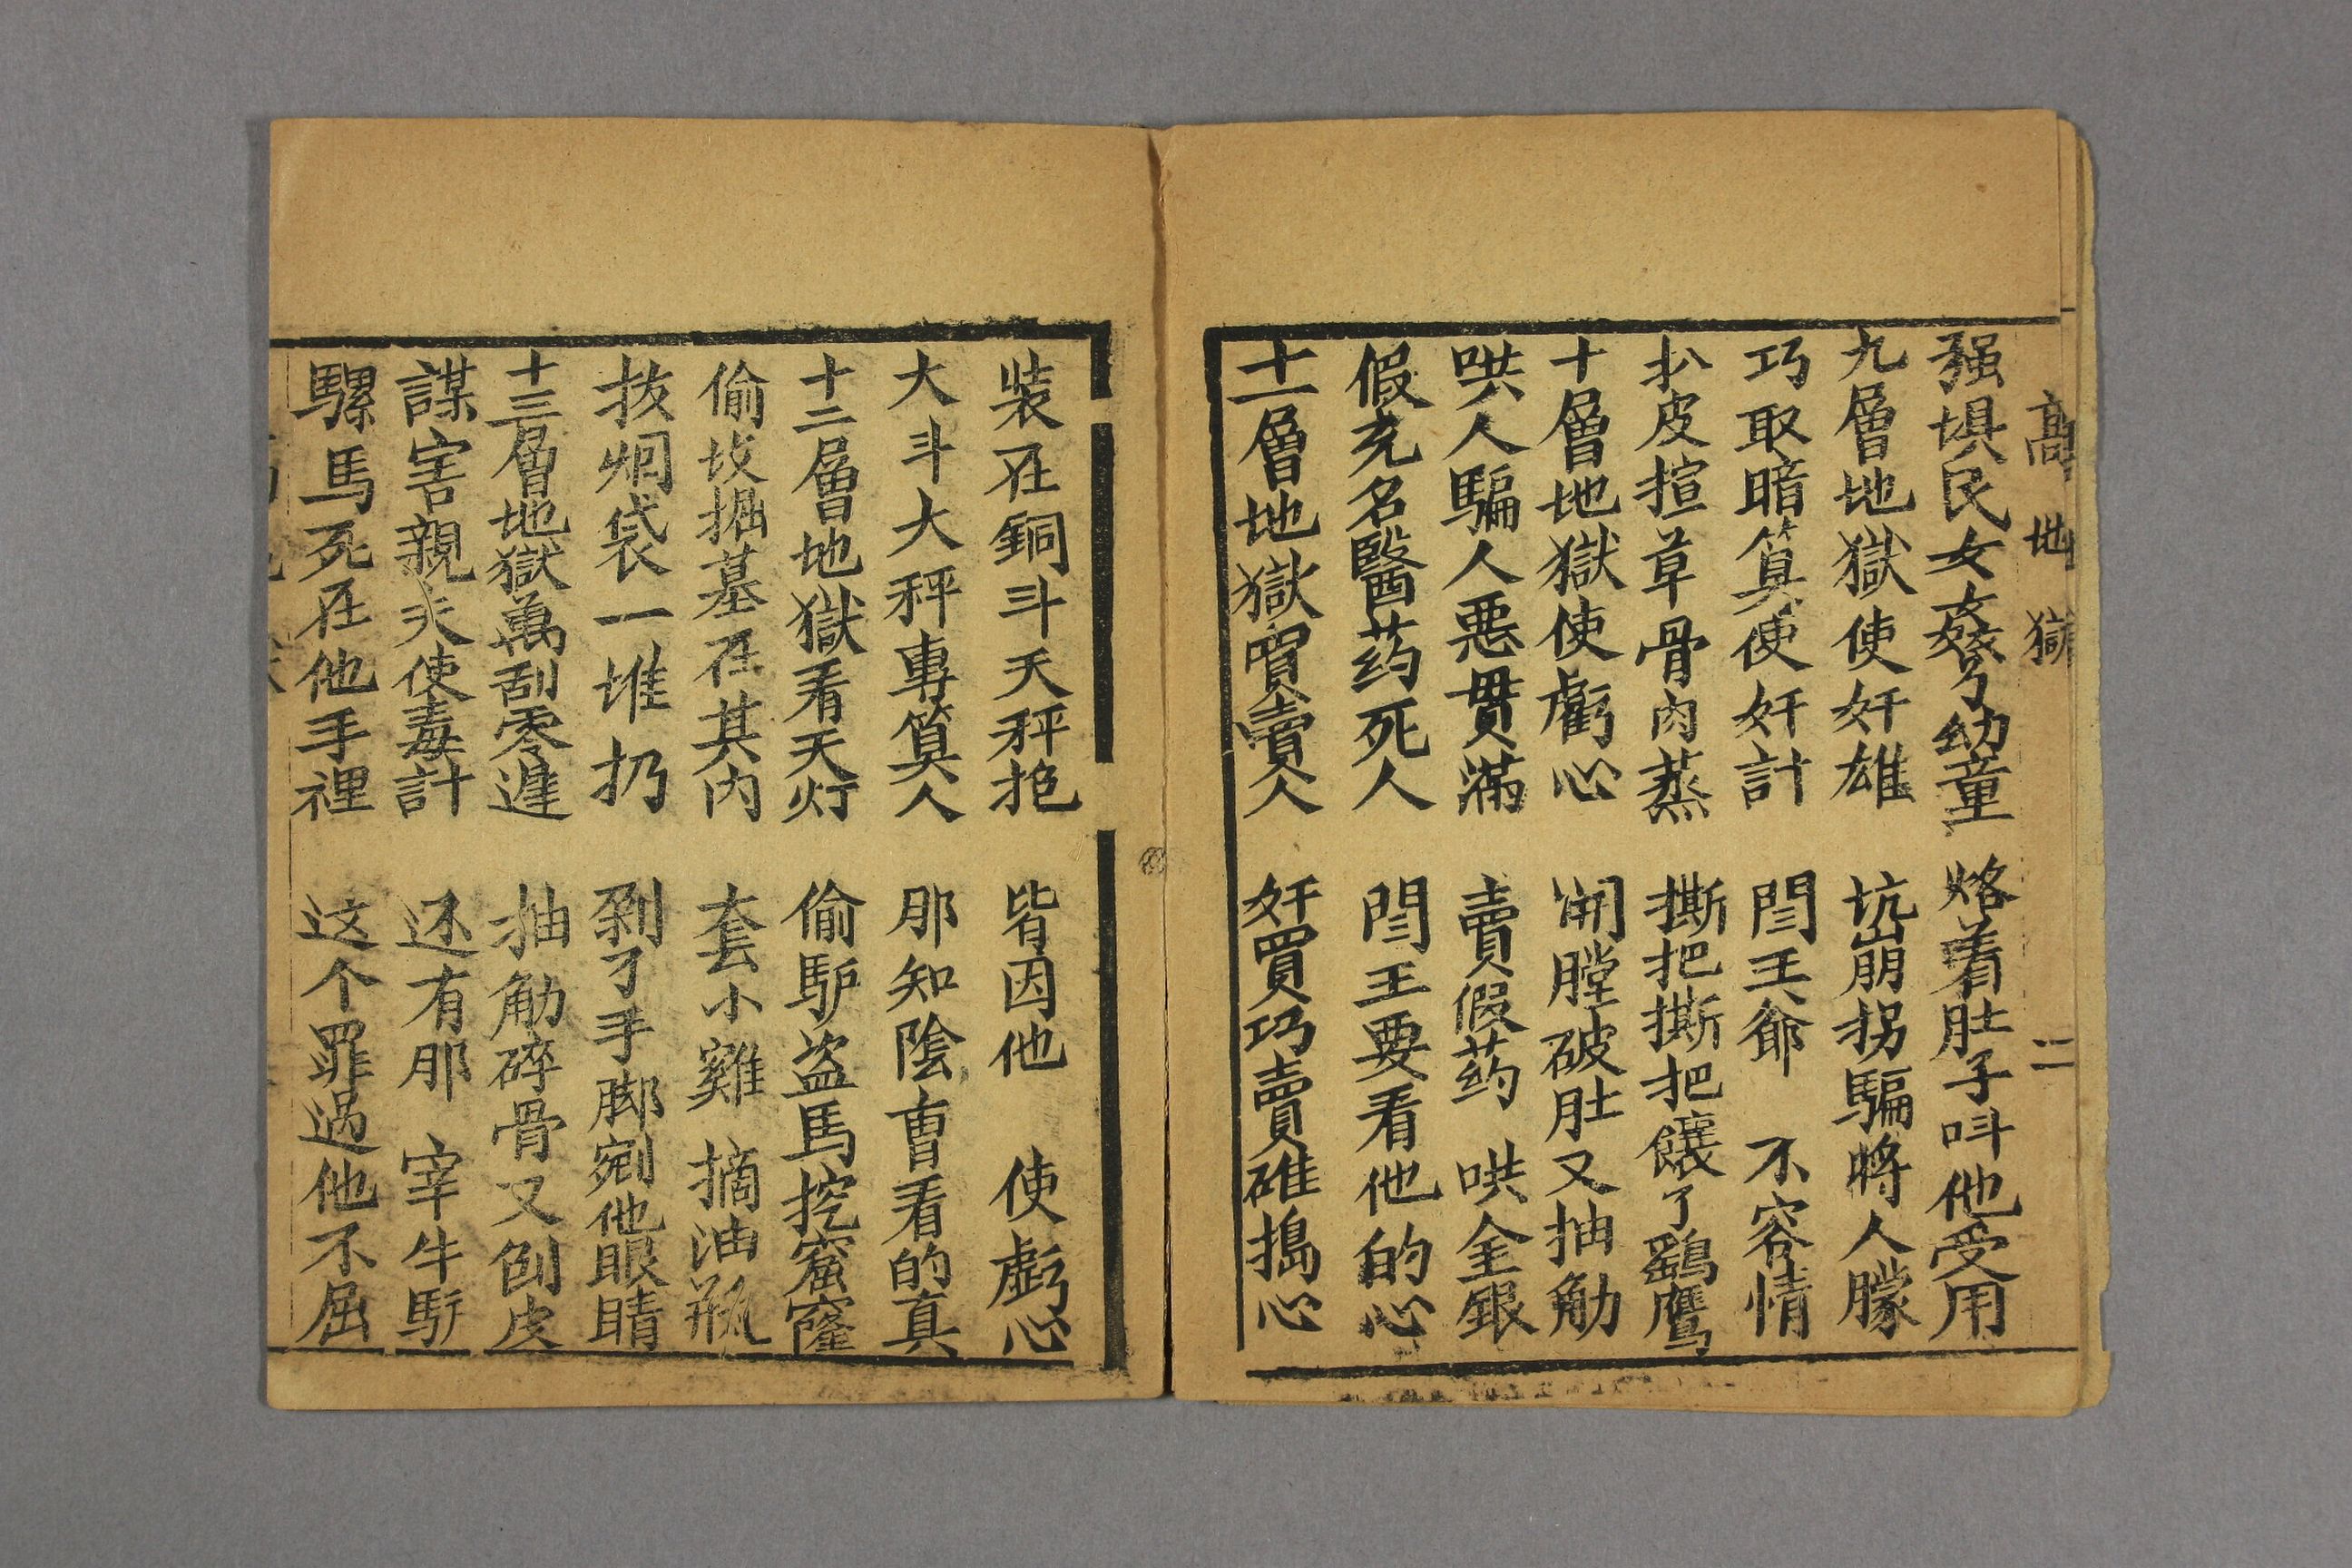 高地獄 二
强惧民女姦了幼童 烙着肚子呌他受用
九層地獄使奸雄 坑崩拐騙將人朦
巧取暗算使奸計 閆王爺 不容情
扒皮揎草骨肉蒸 撕把撕把饟了鷂鷹
十層地獄使虧心 開膛破肚又抽觔
哄人騙人惡貫滿 賣假药 哄金銀
假充名醫药死人 閆王要看他的心
十一層地獄買賣人 奸買巧賣碓搗心
裝在銅斗天秤抱 皆因他 使虧心
大斗大秤專算人 那知陰曹看的真
十二層地獄看天灯 偷馿盗馬挖窟窿
偷坟掘墓在其内 套小雞 摘油瓶
拔烟袋一堆扔 剁了手脚剜他眼睛
十三層地獄萬刮零遲 抽觔碎骨又刨皮
謀害親夫使毒計 还有那 宰牛馿
騾馬死在他手裡 这个罪過他不屈